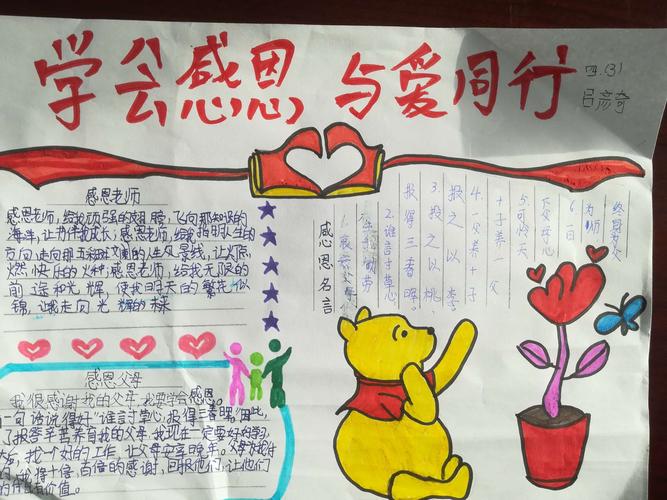 学会感恩 与爱同行
四.(3)
吕彦奇
感恩老师
感恩老师,给我顽强的翅膀,飞向那知识的
海洋,让力伴我成长;感恩老师,给我指明人生的
方向走向那五彩斑斓的人生风景线,让灯照
燃快乐的火种;感恩老师,给我无限的
前途和光辉,使我明天的繁花似
锦,让我走向光辉的未来
感恩父母
我很感谢我的父母,我要学会感恩。
一句话说得好“谁言寸草心,报得三春晖。因此,
了报答辛苦养育我的父母,我现在一定要好好学习,
大后,找一个好的工作,让父母安享晚年。
十倍,百倍的感谢,回报他们,让他们
价值。
感恩名言
2.谁言寸草心
报得三春晖。
3.投之以桃,
报之以李
4.一父养十子
十子养一父
5.可怜天
下父母心
6.一日
为师
终身为父